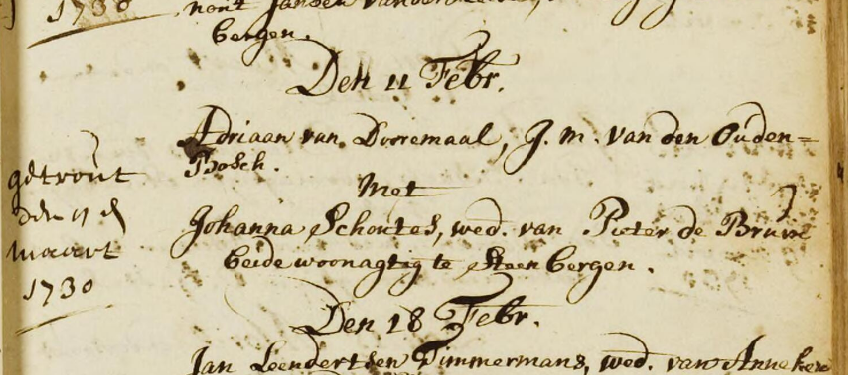 1730
nout Jansen
bergen.
Den 11 Febr.
Adriaan van Dorremaal, J. m. van den Ouden=
Bosch.
Met
getrout
den
maart
1730
Johanna Schoutes, wed. van Pieter de Bruin
beide woonagtig te Steenbergen.
Den 18 Febr.
Jan Leendertsen Timmermans, wed. van